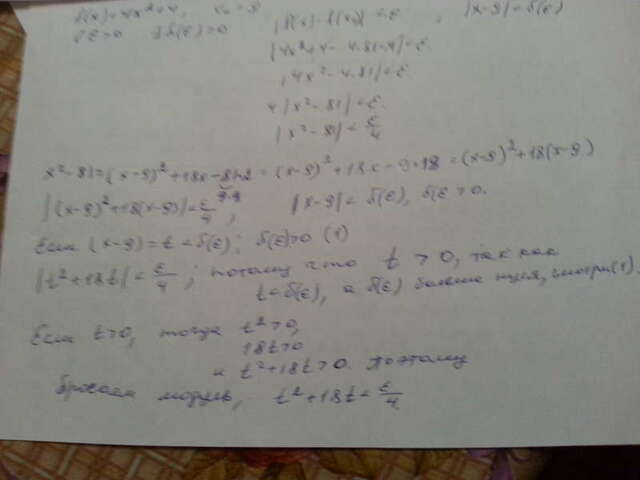 f(x)=4x²+4, x₀=9
∀ε>0 ∃δ(ε)>0 |f(x)-f(x₀)|<ε, |x-9|<δ(ε)
|4x²+4-4·81-4|<ε
|4x²-4·81|<ε
4|x²-81|<ε
|x²-81|<ε/4
x²-81=(x-9)²+18x-81·2=(x-9)²+18x-9·18=(x-9)²+18(x-9)
9·9
|(x-9)²+18(x-9)|<ε/4; |x-9|<δ(ε), δ(ε)>0.
Если (x-9)=t<δ(ε); δ(ε)>0 (1)
|t²+18t|<ε/4; потому что t>0, так как
t<δ(ε), а δ(ε) больше нуля, смотри (1).
Если t>0, тогда t²>0,
18t>0
и t²+18t>0. Поэтому
бросаем модуль, t²+18t<ε/4